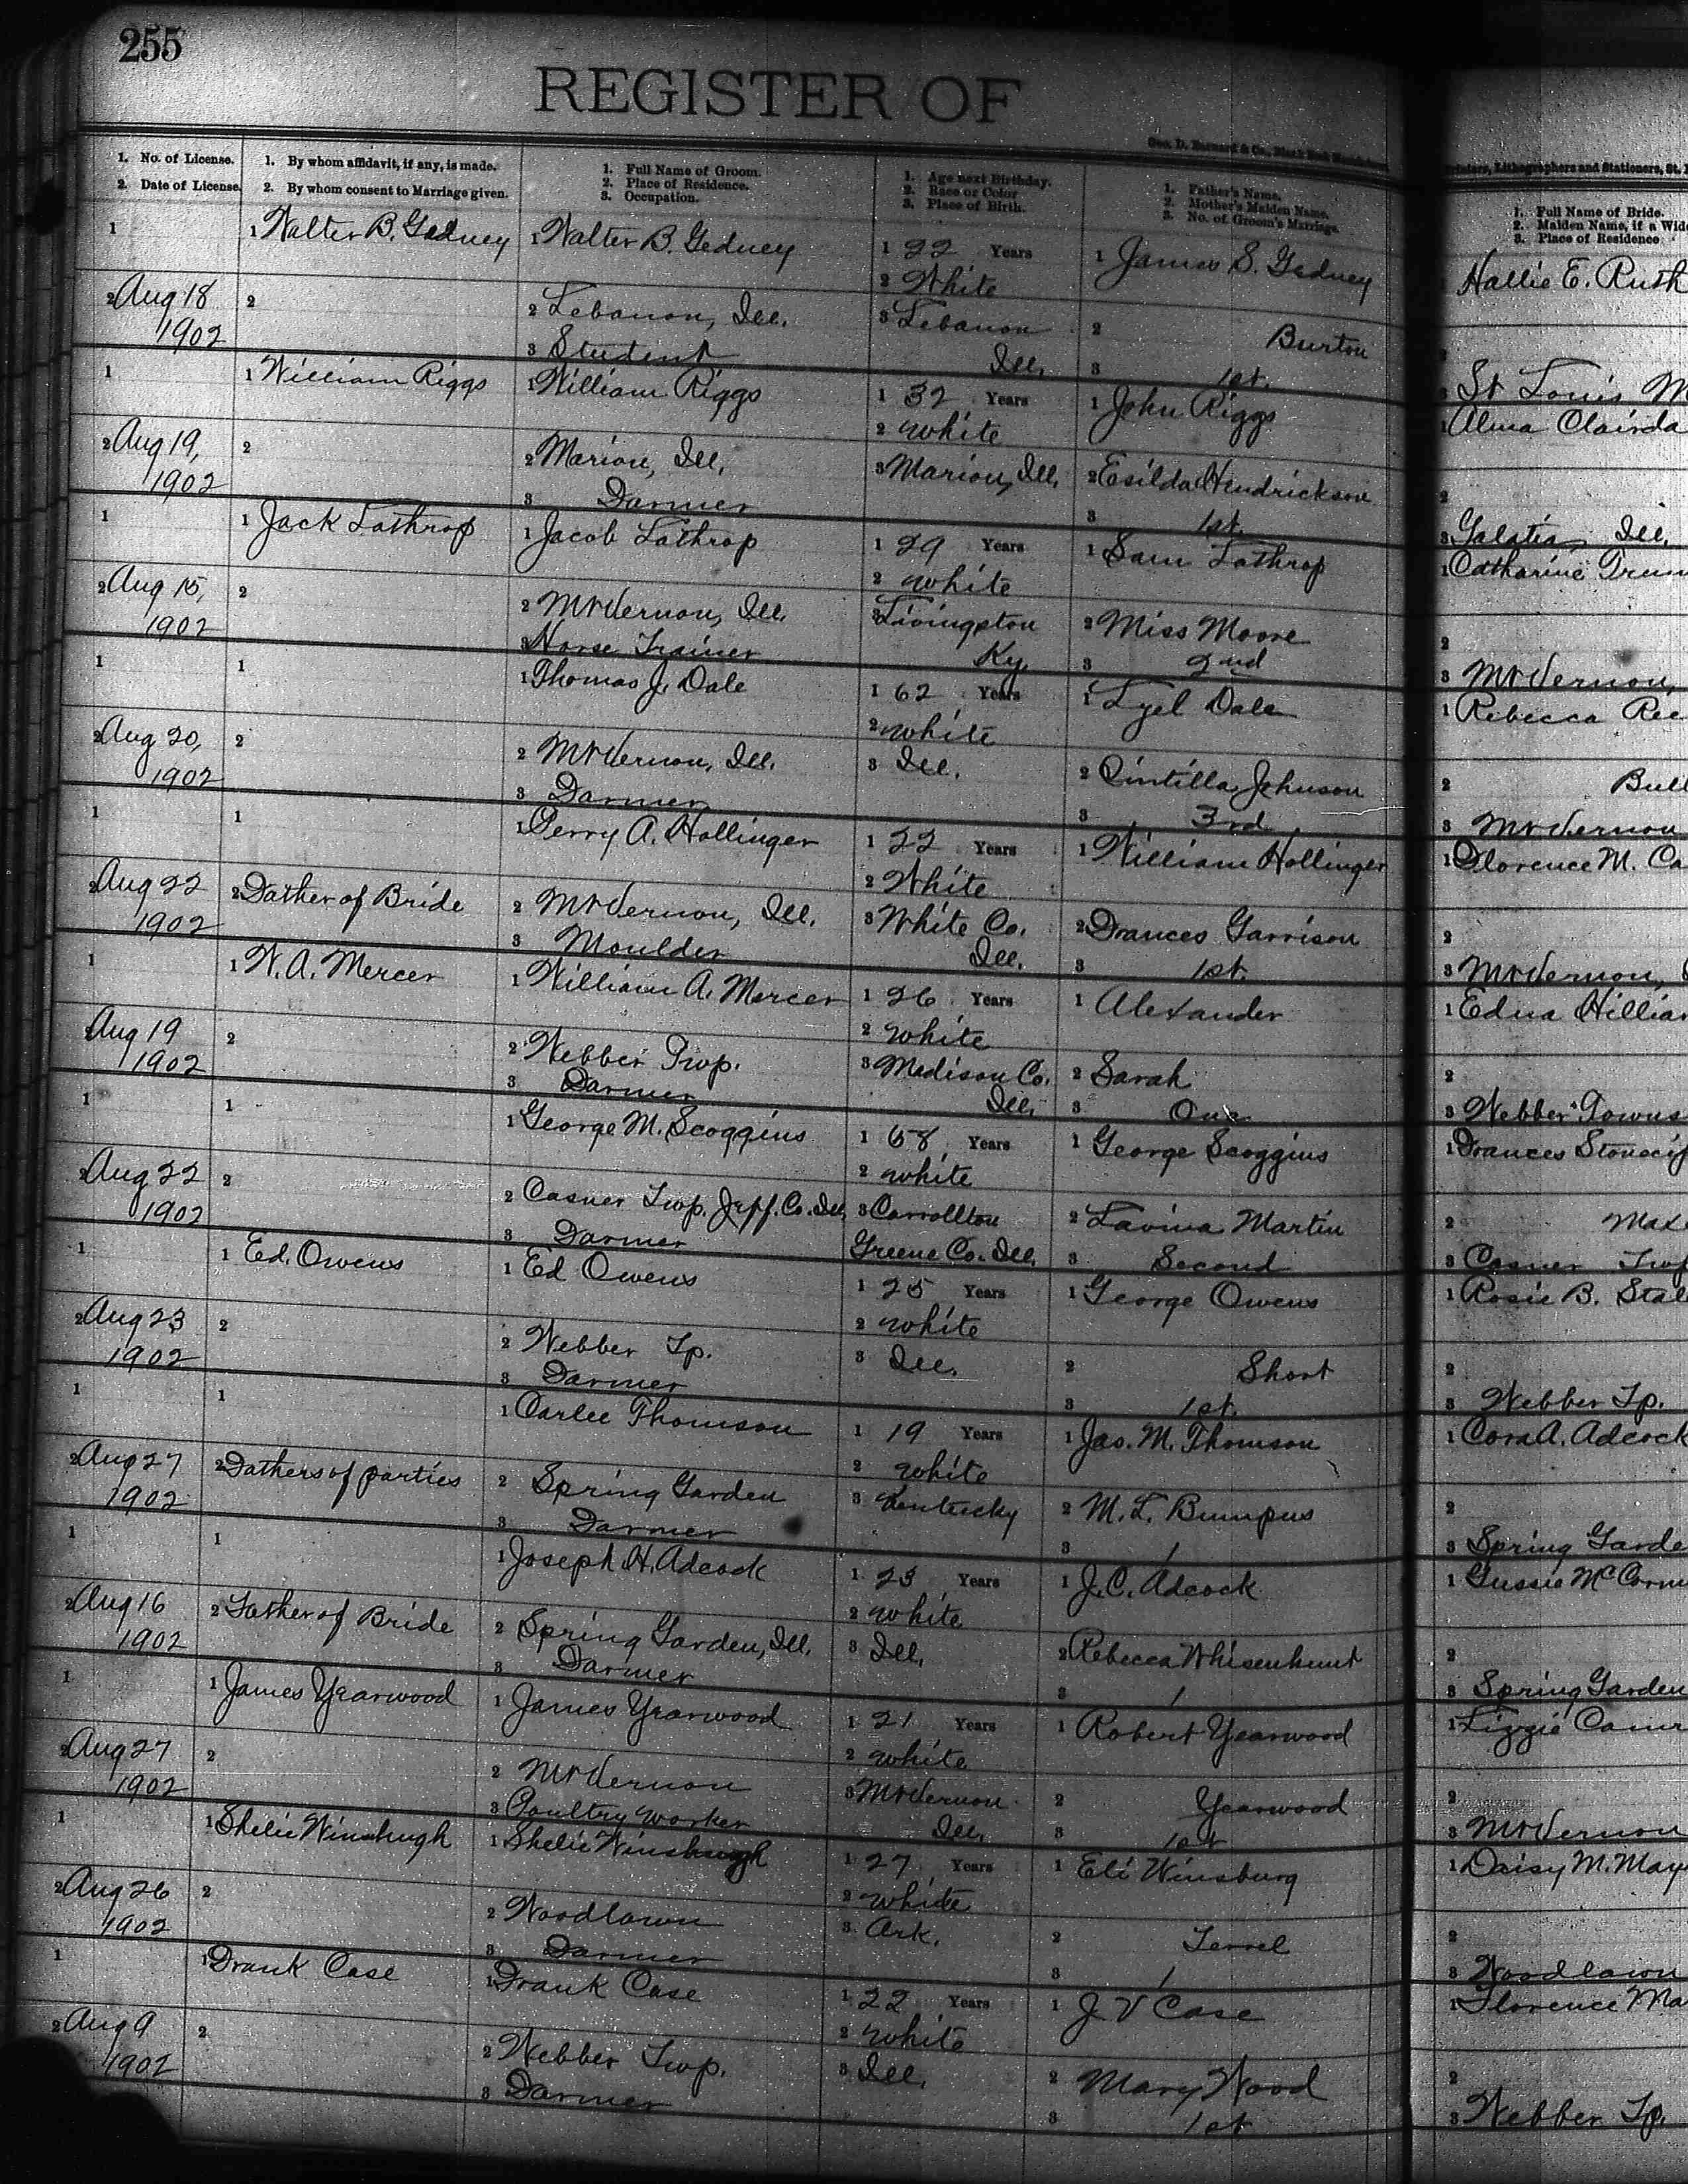 255
REGISTER OF
Geo. D. Barnard & Co., Blank Book
Printers, Lithographers and Stationers, St.
1. No. of License.
2. Date of License.
1. By whom affidavit, if any, is made.
2. By whom consent to Marriage given.
1. Full Name of Groom.
2. Place of Residence.
3. Occupation.
1. Age next Birthday.
2. Race or Color
3. Place of Birth.
1. Father's Name.
2. Mother's Maiden Name.
3. No. of Groom's Marriage.
1. Full Name of Bride.
2. Maiden Name, if a Wid
3. Place of Residence
1
2 Aug 18
1902
1 Walter B. Gedney
2
1 Walter B. Gedney
2 Lebanon, Ill.
3 Student
1 22 Years
2 White
3 Lebanon
Ill.
1 James S. Gedney
2 Burton
3 1st.
Hallie E. Ruth
2
3 St Louis M
1
2 Aug 19,
1902
1 William Riggs
2
1 William Riggs
2 Marion, Ill.
3 Farmer
1 32 Years
2 white
3 Marion, Ill.
1 John Riggs
2 Esilda Hendrickson
3 1st.
1 Alma Clairda
2
3 Galatia, Ill.
1
2 Aug 15,
1902
1 Jack Lathrop
2
1 Jacob Lathrop
2 Mt Vernon, Ill.
3 Horse Trainer
1 29 Years
2 white
3 Livingston
Ky.
1 Sam Lathrop
2 Miss Moore
3 2nd
1 Catharine
2
3 Mt Vernon,
1
2 Aug 20,
1902
1
2
1 Thomas J. Dale
2 Mt Vernon, Ill.
3 Farmer
1 62 Years
2 white
3 Ill.
1 Lyel Dale
2 Cintilla Johnson
3 3rd
1 Rebecca Ree
2 Bull
3 Mt Vernon
1
2 Aug 22
1902
1
2 Father of Bride
1 Perry A. Hollinger
2 Mt Vernon, Ill.
3 Moulder
1 22 Years
2 White
3 White Co.
Ill.
1 William Hollinger
2 Frances Garrison
3 1st.
1 Florence M. Ca
2
3 Mt Vernon,
1
2 Aug 19
1902
1 W. A. Mercer
2
1 William A. Mercer
2 Webber Twp.
3 Farmer
1 26 Years
2 white
3 Madison Co.
Ill.
1 Alexander
2 Sarah
3 One
1 Edna Hillia
2
3 Webber Towns
1
2 Aug 22
1902
1
2
1 George M. Scoggins
2 Casner Twp. Jeff. Co. Ill.
3 Farmer
1 68 Years
2 white
3 Carrollton
Greene Co. Ill.
1 George Scoggins
2 Lavina Martin
3 Second
1 Frances Stonecif
2
3 Casner Twp
1
2 Aug 23
1902
1 Ed. Owens
2
1 Ed Owens
2 Webber Tp.
3 Farmer
1 25 Years
2 white
3 Ill.
1 George Owens
2 Short
3 1st.
1 Rosie B. Stal
2
3 Webber Tp.
1
2 Aug 27
1902
1
2 Fathers of parties
1 Carlee Thomson
2 Spring Garden
3 Farmer
1 19 Years
2 white
3 Kentucky
1 Jas. M. Thomson
2 M. L. Bumpus
3 1
1 Cora A. Adcock
2
3 Spring Garde
1
2 Aug 16
1902
1
2 Father of Bride
1 Joseph H. Adcock
2 Spring Garden, Ill.
3 Farmer
1 23 Years
2 white
3 Ill.
1 J. C. Adcock
2 Rebecca Whisenhunt
3 1
1 Gussie McCorm
2
3 Spring Garden
1
2 Aug 27
1902
1 James Yearwood
2
1 James Yearwood
2 Mt Vernon
3 Poultry worker
1 21 Years
2 white
3 Mt Vernon
Ill.
1 Robert Yearwood
2 Yearwood
3 1st
1 Lizzie
2
3 Mt Vernon
1
2 Aug 26
1902
1 Shelie
2
1 Shelie
2 Woodlawn
3 Farmer
1 27 Years
2 white
3 Ark.
1 Eli Winsburg
2 Terrel
3 1
1 Daisy M. May
2
3 Woodlawn
1
2 Aug 9
1902
1 Frank Case
2
1 Frank Case
2 Webber Twp.
3 Farmer
1 22 Years
2 white
3 Ill.
1 J V Case
2 Mary Wood
3 1st
1 Florence Ma
2
3 Webber Tp.